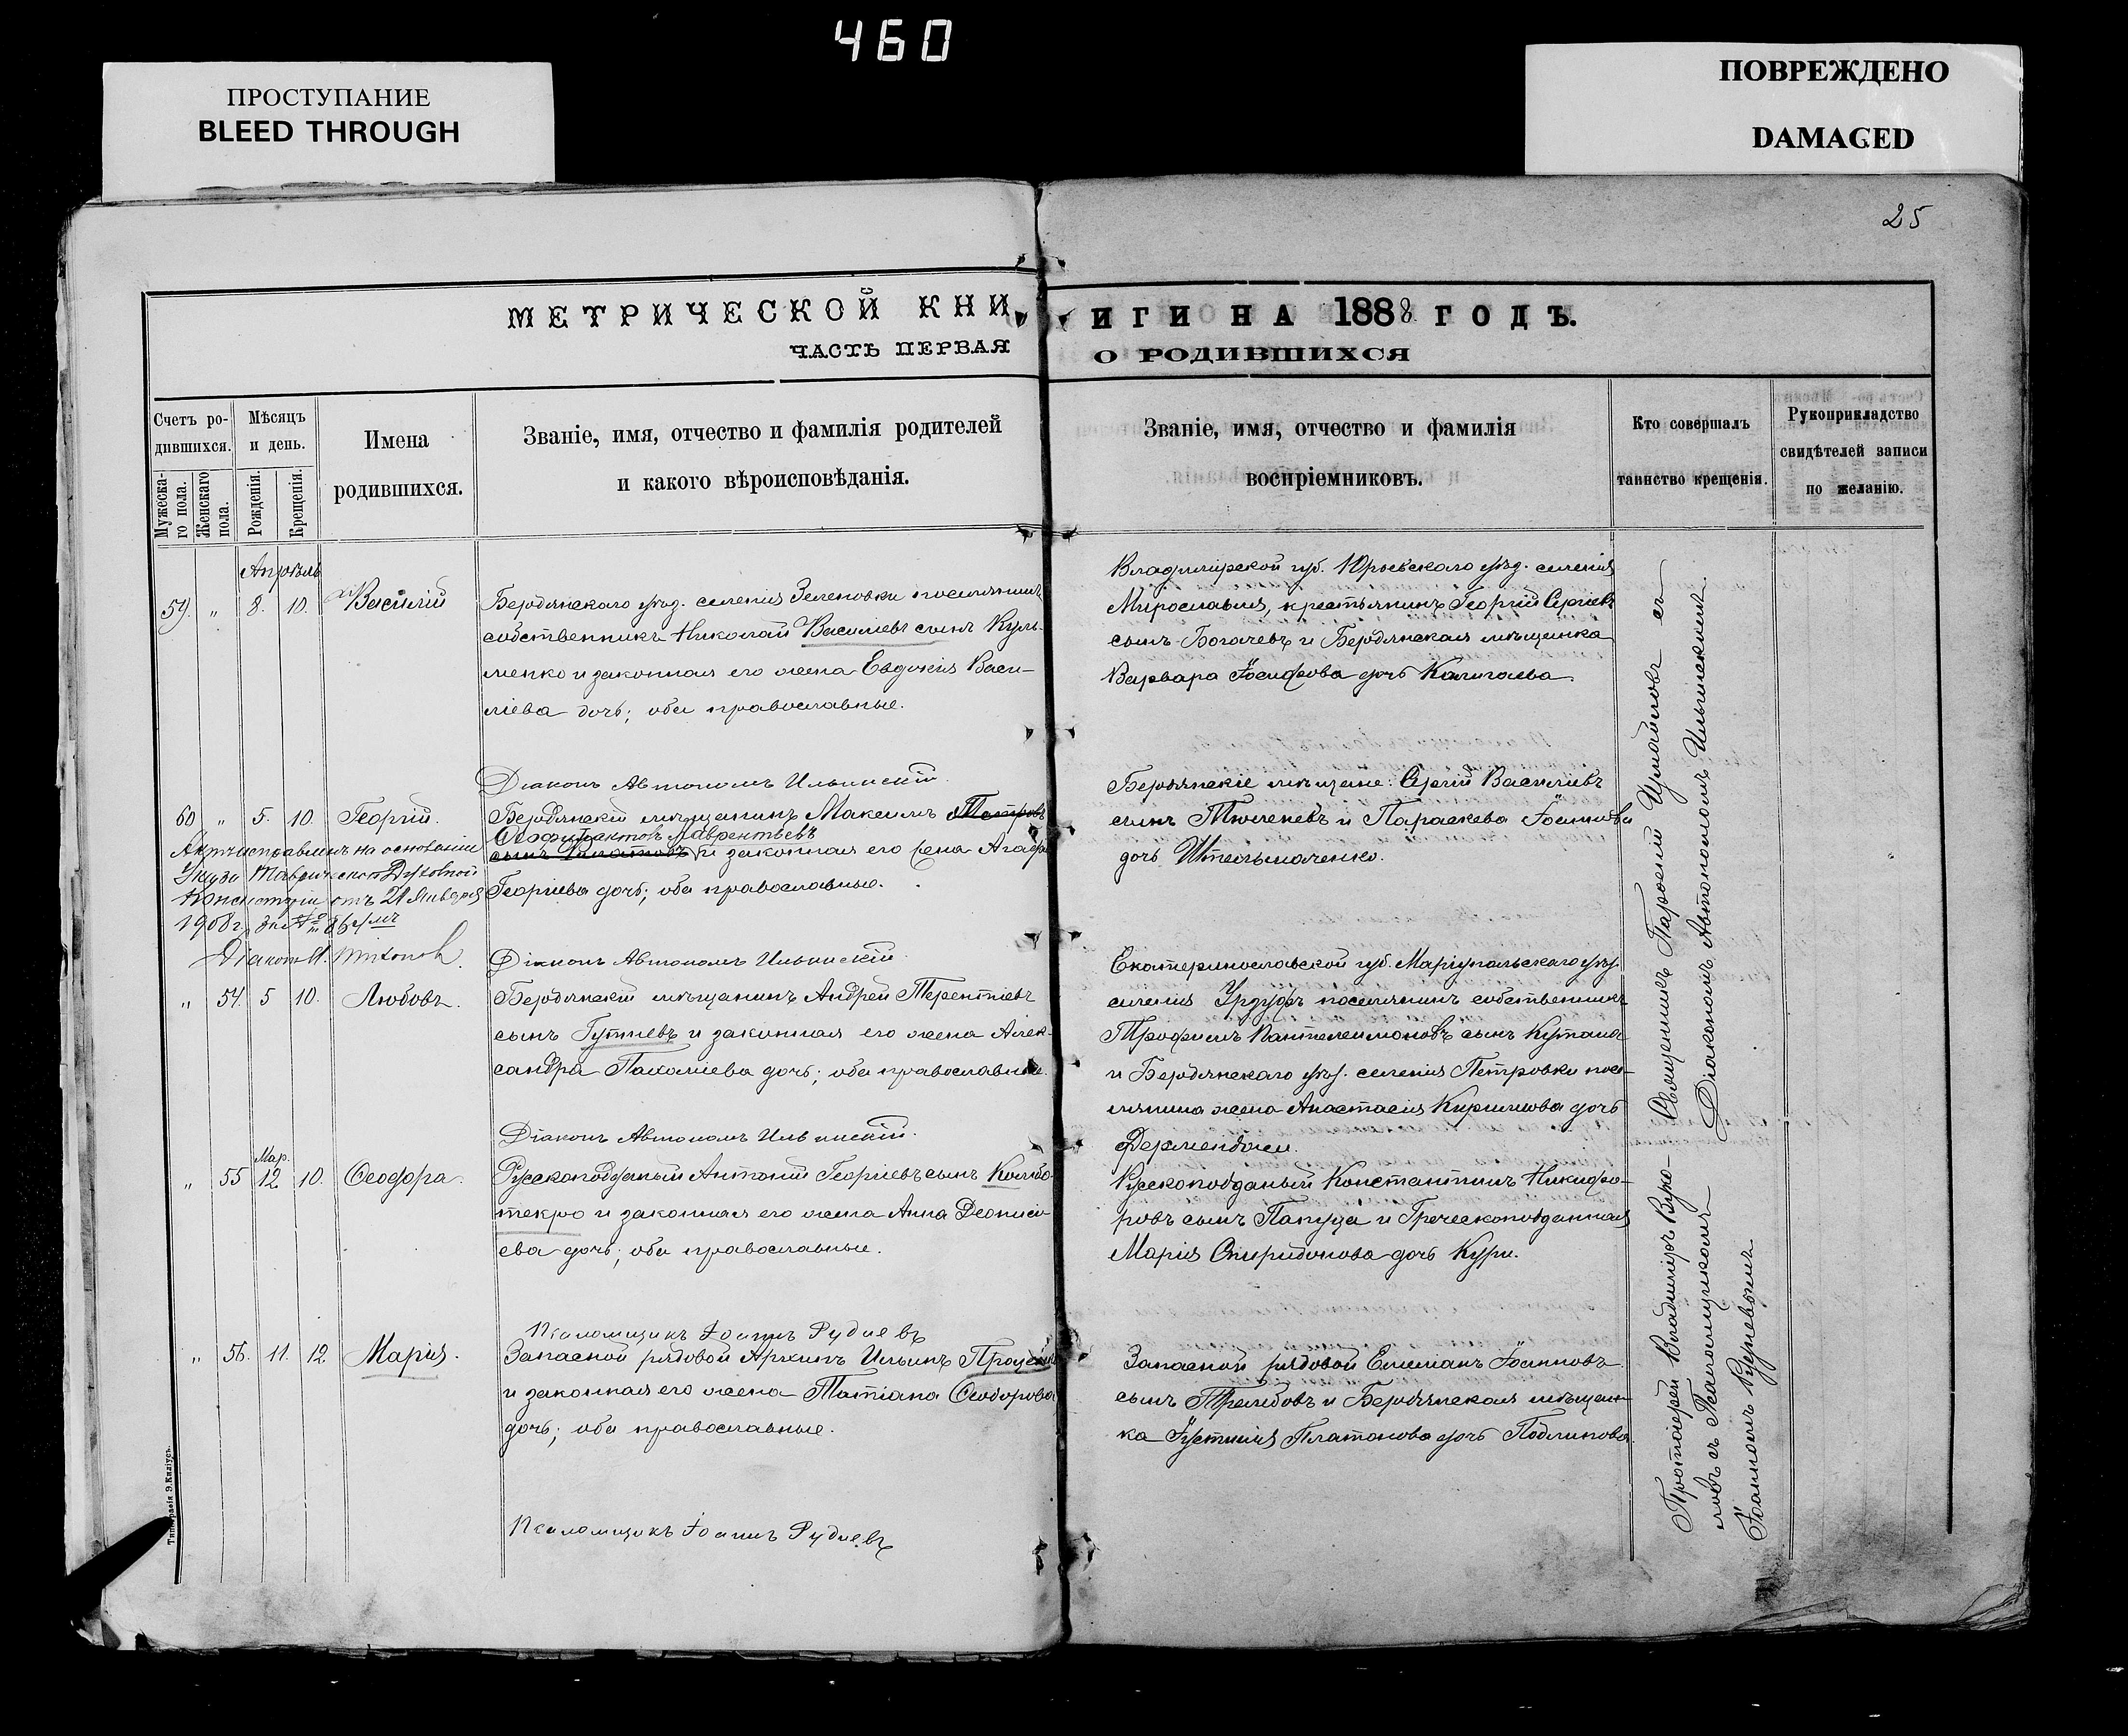 460
ПРОСТУПАНИЕ
BLEED THROUGH
ПОВРЕЖДЕНО
DAMAGED
25
МЕТРИЧЕСКОЙ КНИ
ИГИ НА 1888 ГОДЪ.
ЧАСТЬ ПЕРВАЯ
О РОДИВШИХСЯ
Счетъ ро-
дившихся.
Мужеска-
го пола.
Женскаго
пола.
Мѣсяцъ
и день.
Рожденія.
Крещенія.
Имена
родившихся.
Званіе, имя, отчество и фамилія родителей
и какого вѣроисповѣданія.
Званіе, имя, отчество и фамилія
воспріемниковъ.
Кто совершалъ
таинство крещенія.
Рукоприкладство
свидѣтелей записи
по желанію.
Апрѣль
59. " 8. 10. Василій
Бердянскаго уѣзд. селенія Зеленовки поселянинъ
собственникъ Николай Васильевъ сынъ Куль-
менко и законная его жена Евдокія Васи-
ліева дочь; оба православные.
Діаконъ Автономъ Ильинскій.
Владимірской губ. Юрьевскаго уѣзд. селенія
Мирославля, крестьянинъ Георгій Сергіевъ
сынъ Богачевъ и Бердянская мѣщанка
Варвара Іосифова дочь
60 " 5. 10. Георгій.
Бердянскій мѣщанинъ Максимъ Петровъ
Ѳеофилактовъ Лаврентьевъ
сынъ Филатовъ и законная его жена Агаф
Георгіева дочь; оба православные.
Актъ исправленъ на основаніи
Указа Таврической Духовной
Консисторіи отъ 21 Января
1908 г. за № 864мъ
Діаконъ
Діаконъ Автономъ Ильинскій.
Бердянскіе мѣщане: Сергій Васильевъ
сынъ Тюленевъ и Параскева Іоаннова
дочь Штельмаченко.
" 54. 5 10. Любовь.
Бердянскій мѣщанинъ Андрей Терентіевъ
сынъ Гутневъ и законная его жена Алек-
сандра Пахоміева дочь; оба православные.
Діаконъ Автономъ Ильинскій.
Екатеринославской губ. Маріупольскаго уѣз.
селенія Урзуфъ поселянинъ собственникъ
Трофимъ Пантелеимоновъ сынъ
и Бердянскаго уѣз. селенія Петровки посе-
лянина жена Анастасія Кириллова дочь
Дерменджи.
Мар.
" 55 12 10. Ѳеодора.
Русскоподданый Антоній Георгіевъ сынъ Комбо-
текро и законная его жена Анна Деониси-
ева дочь; оба православные.
Псаломщикъ Іоаннъ Рудневъ
Русскоподданый Константинъ Никифо-
ровъ сынъ Папуца и Греческоподданная
Марія Спиридонова дочь Кури.
" 56. 11. 12 Марія.
Запасной рядовой Архипъ Ильинъ
и законная его жена Татіана Ѳеодорова
дочь; оба православные.
Псаломщикъ Іоаннъ Рудневъ
Запасной рядовой Емеліанъ Іоанновъ
сынъ Трембовъ и Бердянская мѣщан-
ка Іустинія Платонова дочь Подлинова.
Священникъ Парѳеній Измайловъ съ
Діакономъ Автономомъ Ильинскимъ.
Протоіерей Владиміръ Вуко-
ловъ съ Псаломщикомъ
Іоанномъ Рудневымъ
Типографія Э. Килиусъ.